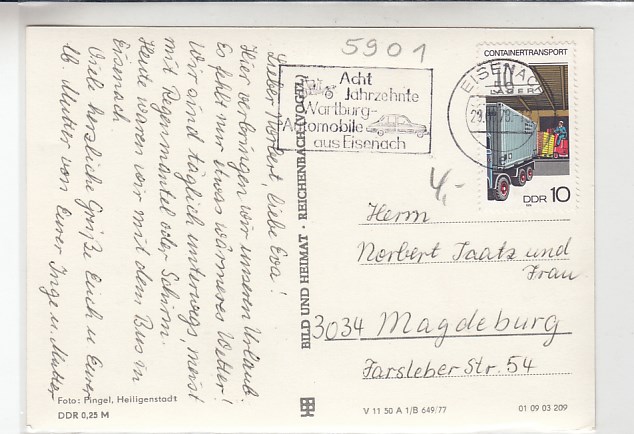 5901
CONTAINERTRANSPORT
EISENACH
29.
78.
Acht
Jahrzehnte
Wartburg-
Automobile
aus Eisenach
DDR 10
4,-
Lieber Norbert, liebe Eva!
Hier verbringen wir unseren Urlaub.
Es fehlt nur etwas wärmeres Wetter!
Wir sind täglich unterwegs, meist
mit Regenmantel oder Schirm.
Heute waren wir mit dem Bus in
Eisenach.
Viele herzliche Grüße Euch u. Eurer
lb. Mutter von Eurer Inge u. Mutter
BILD UND HEIMAT · REICHENBACH (VOGTL)
Herrn
Norbert Taatz und
Frau
3034 Magdeburg
Farsleber Str. 54
Foto: Pingel, Heiligenstadt
DDR 0,25 M
V 11 50 A 1/B 649/77
01 09 03 209